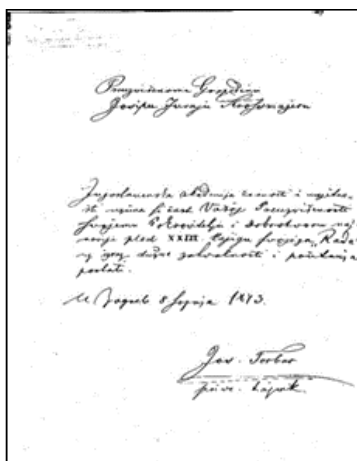 Preuzvišenomu Gospodinu
Josipu Jurju Strossmajeru
Jugoslavenska akademija znanosti i umjetno-
sti uzima si čast Vašoj Preuzvišenosti
svojemu Pokrovitelju i dobrotvoru naj
novije plod XXIII knjigu svojega „Rada"
uz izraz dužne zahvalnosti i poštovanja
poslati.
U Zagrebu 8 srpnja 1873.
Jos. Torbar